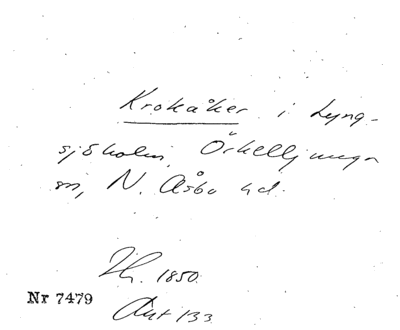 Krokåker i Lyng-
sjöholm, Örkelljunga
sn, N. Åsbo hd.
Th. 1850.
Nr 7479
Akt 133